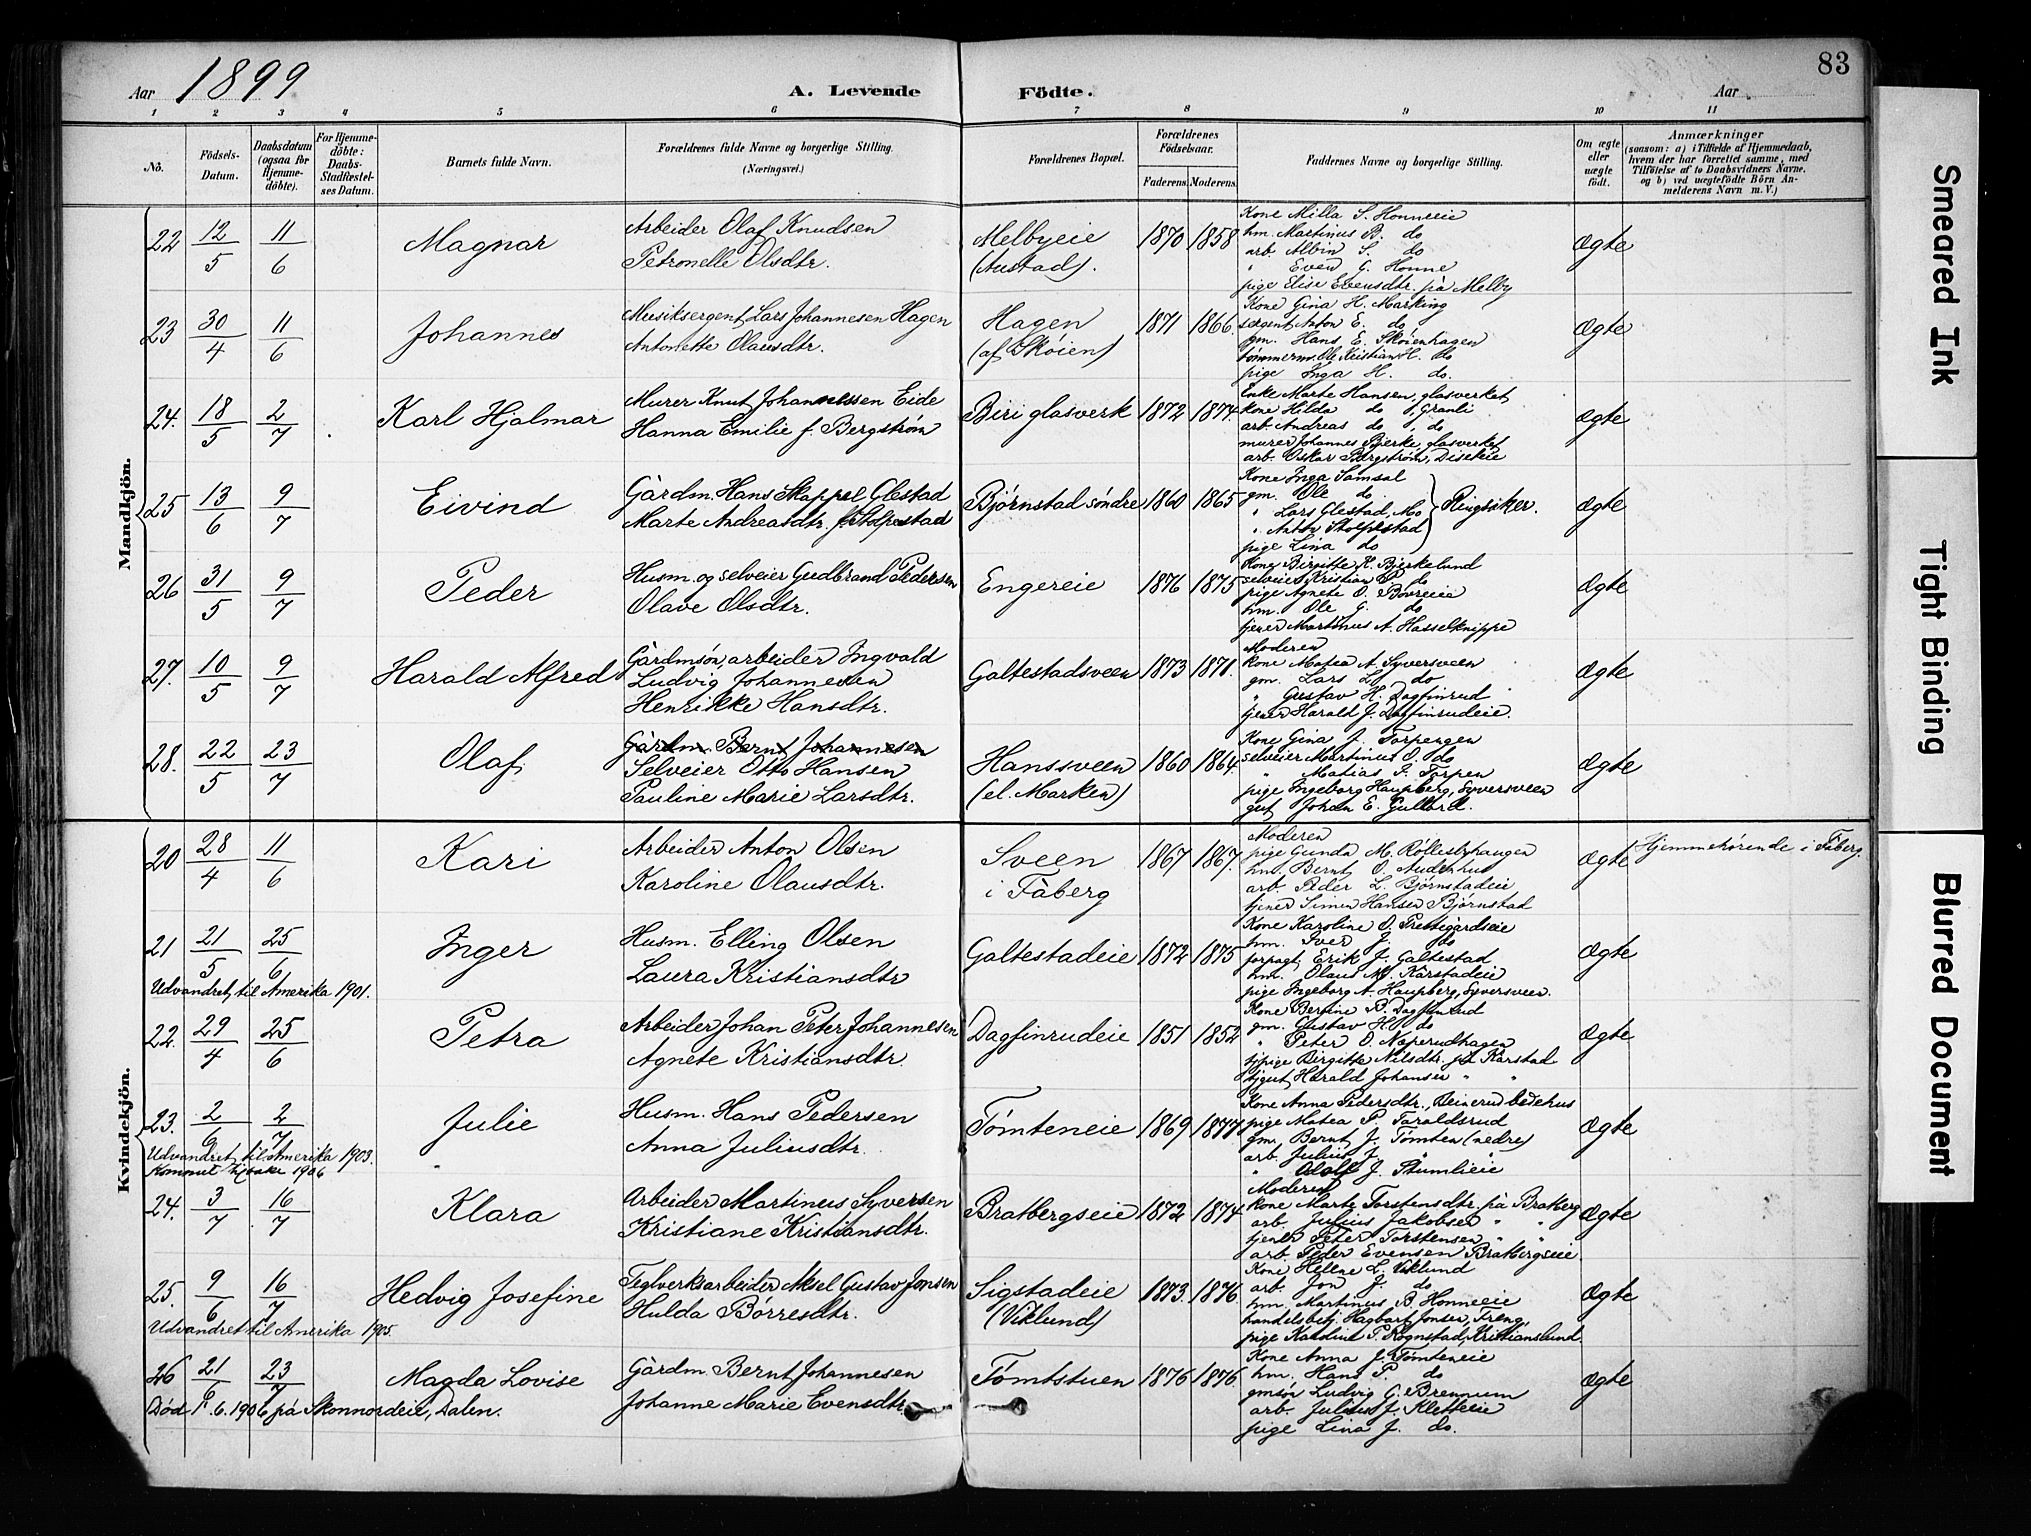 83
Aar 1899
A. Levende Födte.
Aar
1 2 3 4 5 6 7 8 9 10 11
No.
Födsels-Datum.
Daabsdatum (ogsaa for Hjemme-döbte).
For Hjemme-döbte: Daabs-Stadfæstel-ses Datum.
Barnets fulde Navn.
Forældrenes fulde Navne og borgerlige Stilling. (Næringsvei.)
Forældrenes Bopæl.
Forældrenes Födselsaar.
Faderens. Moderens.
Faddernes Navne og borgerlige Stilling.
Om ægte eller uægte födt.
Anmærkninger
(saasom: a) i Tilfælde af Hjemmedaab, hvem der har forrettet samme, med Tilföielse af to Daabsvidners Navne. og b) ved uægtefödte Börn An-melderens Navn m. V.)
Mandkjön.
22 12/5 11/6 Magnar
Arbeider Olaf Knudsen
Petronelle Olsdtr.
Melbyeie
(Austad).
1870 1858
Kone Milla S. Honneeie
hm. Martinus B. do
arb. Albin S. do
" Even G. Honne
pige Elise Evensdtr. på Melby
Ægte
23 30/4 11/6 Johannes
Musiksergent Lars Johannesen Hagen
Antonette Olausdtr.
Hagen
(af Skøien)
1871 1866.
Kone Gina H. Marking
sergent Anton E. do
gm. Hans E. Skøienhagen
tømmerm. Ole Kristian H. do
pige Inga H. do.
Ægte
24. 18/5 2/7 Karl Hjalmar
Murer Knut Johannessen Eide
Hanna Emilie f. Bergstrøm
Biri glasverk
1872 1874.
Enke Marte Hansen, glasverket
kone Hilda do, Granli
arb. Andreas do, do
murer Johannes Bjerke, glasverket
arb. Oskar Bergstrøm, Diseteie
Ægte
25 13/6 9/7 Eivind
Gårdm. Hans Skappel Glestad
Marte Andreasdtr. f. Stolpestad
Bjørnstad søndre
1860 1865
Kone Inga Samsal
gm. Ole do
" Lars Glestad, Mo
" Anton Stolpestad
pige Lina do
Ringsaker.
Ægte
26 31/5 9/7 Peder
Husm. og selveier Gudbrand Pedersen
Olave Olsdtr.
Engereie
1876 1875
Kone Birgitte K. Bjerkelund
selveier Kristian P. do
pige Agnete O. Bovreeie
hm. Ole G. do
tjener Martinus A. Hasselknippe
Ægte
27. 10/5 9/7 Harald Alfred
Gårdmsøn, arbeider Ingvald
Ludvig Johannesen
Henrikke Hansdtr.
Galtestadsveen
1873 1871.
Moderen
kone Matea A. Syversveen
gm. Lars L. do
" Gustav H. Dagfinrud
tjener Harald J. Dagfinrudeie.
Ægte
28. 22/5 23/7 Olaf
Gårdm. Bernt Johannesen
Selveier Otto Hansen
Pauline Marie Larsdtr.
Hanssveen
(el. Marken)
1860 1864.
Kone Gina J. Torpengen
selveier Martinus O. do
" Matias J. Torpen
pige Ingeborg Haugberg, Syversveen
gut Johan E. Gullord.
Ægte
Kvindekjön.
20 28/4 11/6 Kari
Arbeider Anton Olsen
Karoline Olausdtr.
Sveen
i Fåberg
1867 1867.
Moderen
pige Gunda M. Røllesbyhaugen
hm. Bernt O. Audenrud
arb. Peder L. Bjørnstadeie
tjener Simen Hansen Bjørnstad
Ægte
Hjemmehørende i Fåberg.
21 21/5 25/6 Inger
Husm. Elling Olsen
Laura Kristiansdtr
Galtestadeie
1872 1875
Kone Karoline O. Prestegårdseie
hm. Iver J. do
forpagt. Erik J. Galtestad
hm. Olaus M. Kårstadeie
pige Ingeborg A. Haugberg, Syversveen.
Ægte
Udvandret til Amerika 1901.
22. 29/4 25/6 Petra
Arbeider Johan Peter Johannesen
Agnete Kristiansdtr.
Dagfinrudeie
1851 1852
Kone Bertine B. Dagfinrud
gm. Gustav H. do
" Peter O. Næperudhagen
tjpige Birgitte Nilsdtr. på Kårstad
tjgut Harald Johansen " "
Ægte
23. 2/6 2/7 Julie
Husm. Hans Pedersen
Anna Juliusdtr.
Tømteneie
1869 1877
Kone Anna Pedersdtr., Beinerud bedehus
pige Matea P. Taraldsrud
gm. Bernt J. Tømten (nedre)
arb. Julius J. " "
" Adolf J. Stumlieie
Ægte
Udvandret til Amerika 1903.
Kommet tilbake 1906
24. 3/7 16/7 Klara
Arbeider Martinus Syversen
Kristiane Kristiansdtr.
Bratbergseie
1872 1874
Moderen
kone Marte Torstensdtr. på Bratberg
arb. Julius Jakobsen " "
tjener Peter Torstensen " "
arb. Peder Evensen Bratbergseie.
Ægte
25. 9/6 16/7 Hedvig Josefine
Teglverksarbeider Aksel Gustav Jonsen
Hulda Børresdtr.
Sigstadeie
(Viklund)
1873. 1876
Kone Hellne L. Viklund
arb. Jon J. do
hm. Martinus B. Honneeie
handelsbetj. Hagbart Jonsen, Freng,
pige Karoline P. Rognstad, Kristianslund
Ægte
Udvandret til Amerika 1905.
26 21/6 23/7 Magda Lovise
Gårdm. Bernt Johannesen
Johanne Marie Evensdtr.
Tømtstuen
1876 1876.
Kone Anna J. Tømteneie
hm. Hans P. do
gmsøn Ludvig G. Brennum
arb. Julius J. Kletteeie
pige Lina J. do.
Ægte
Død 1/6. 1906 på Skonnordeie, Dalen.
Smeared Ink
Tight Binding
Blurred Document